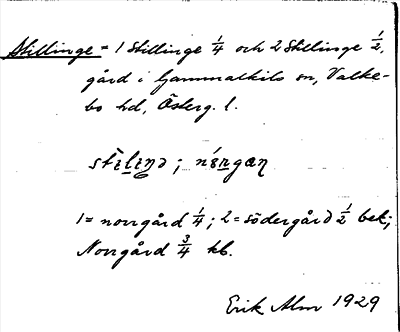 Skillinge = 1 Skillinge 1/4 och 2 Skillinge 1/2,
gård i Gammalkils sn, Valke-
bo hd, Österg. l.
1 = norrgård 1/4; 2 = södergård 1/2 bek;
Norrgård 3/4 kb.
Erik Alm 1929